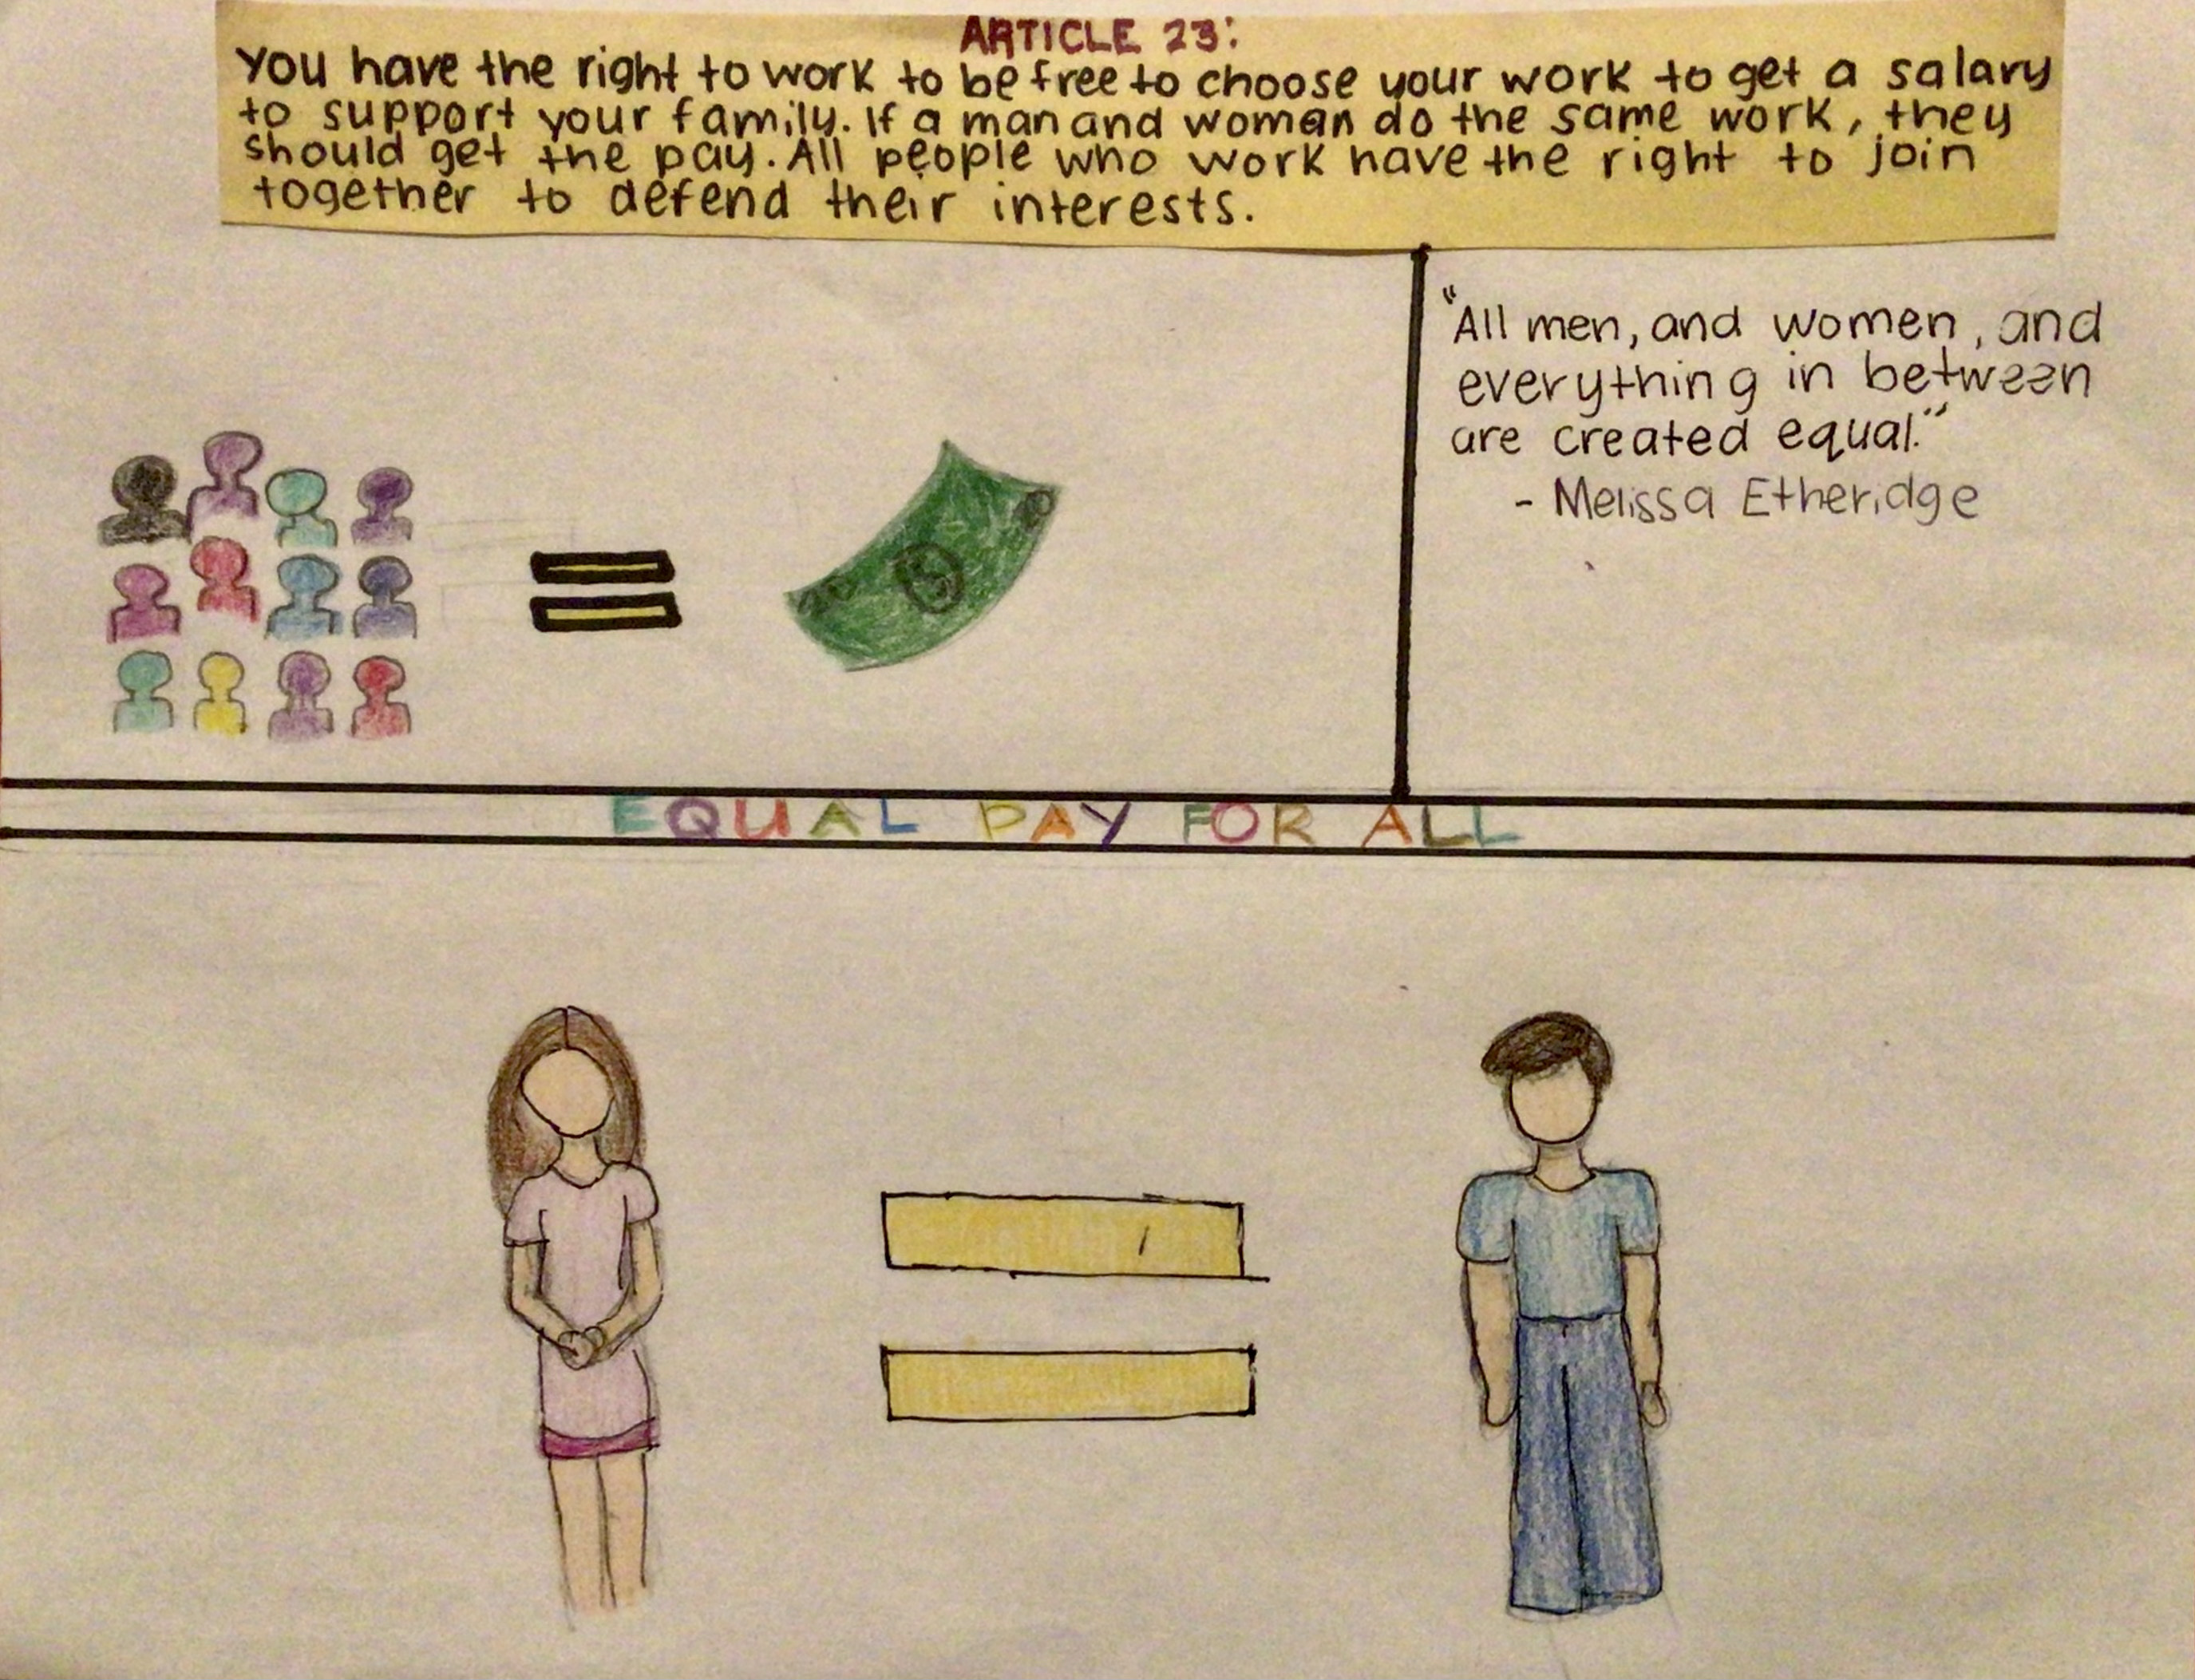 ARTICLE 23:
You have the right to work to be free to choose your work to get a salary
to support your family. If a man and woman do the same work, they
should get the pay. All people who work have the right to join
together to defend their interests.
"All men, and women, and
everything in between
are created equal."
- Melissa Etheridge
EQUAL PAY FOR ALL